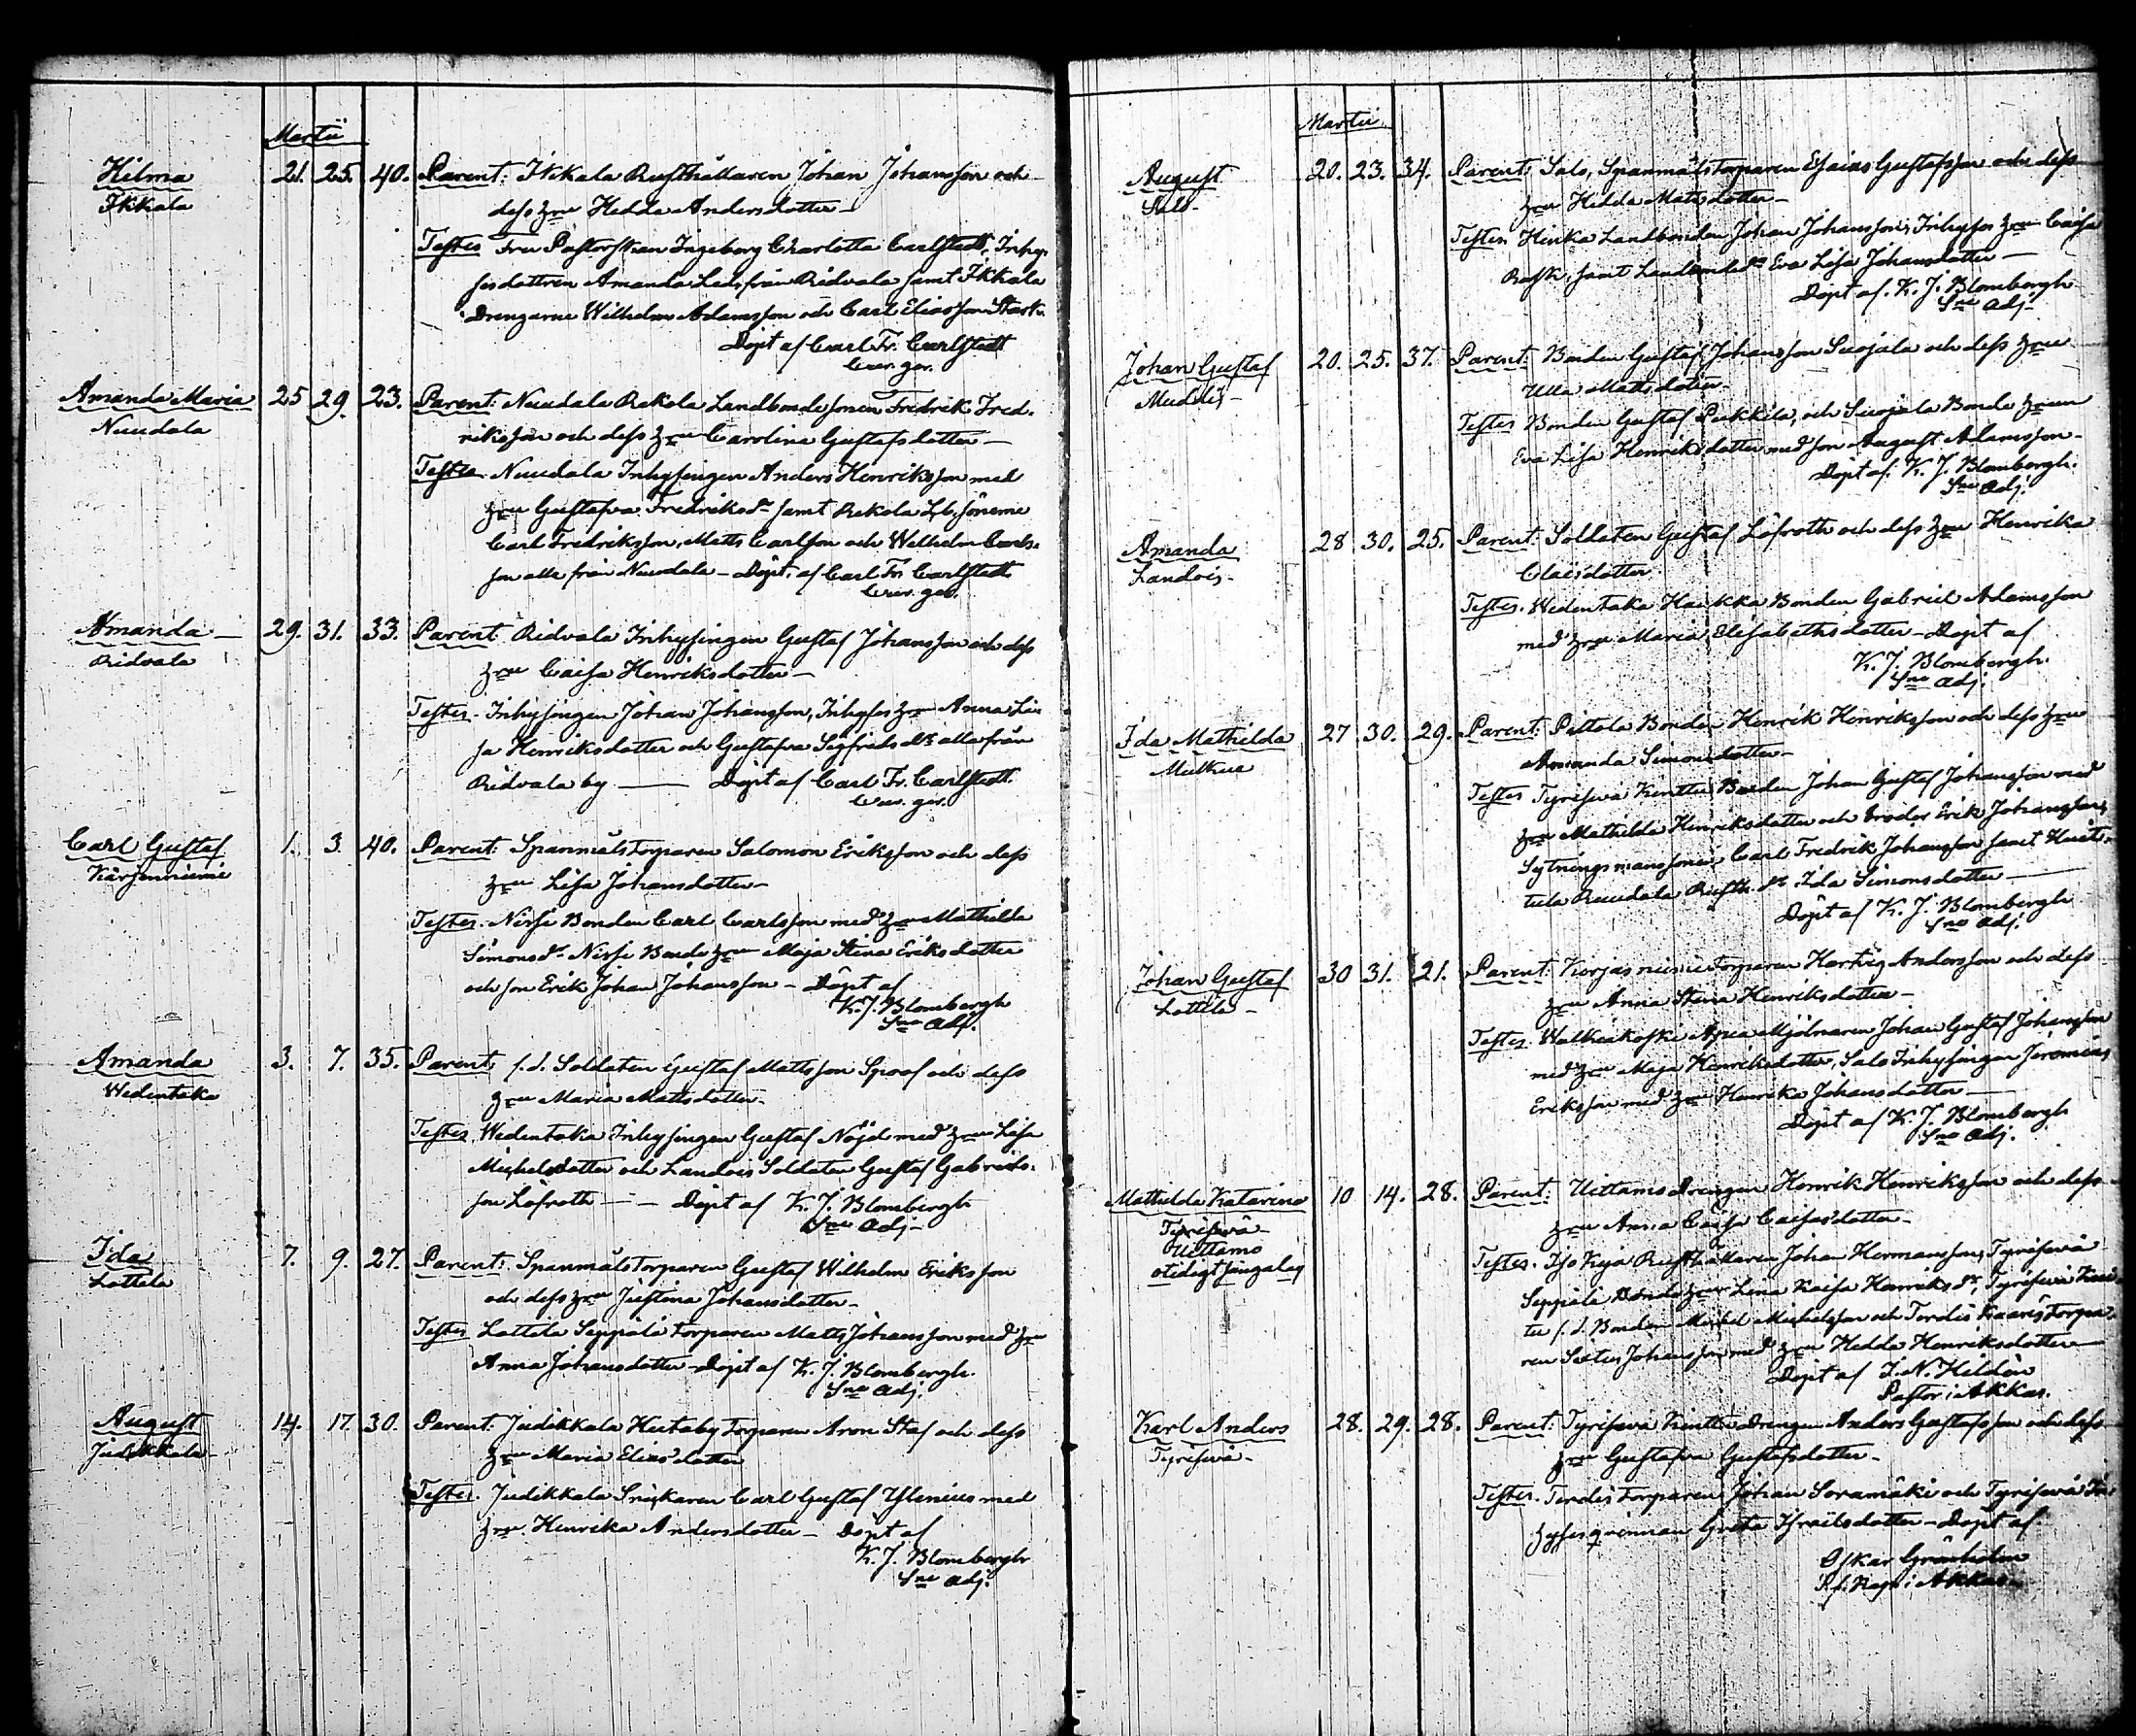 Martii
Hilma 21. 25. 40. Parent: Ikkala Rusthållaren Johan Johansson och
Ikkala dess hru Hedda Andersdotter
Testes Fru Pastorskan Ingeborg Charlotta Carlstedt, Inhy-
sesdottren Amanda från Ridvala samt Ikkala
Drengarne Wilhelm Adamsson och Carl Eliasson Stark.
Döpt af Carl Fr. Carlstedt
Amanda Maria 25 29. 23. Parent: Nuudala Rekola Landbondesonen Fredrik Fred-
Nuudala riksson och dess hru Carolina Gustafsdotter
Testes Nuudala Inhysingen Anders Henriksson med
hru Gustafva Fredriksdr samt Rekola Lb. Sönerne
Carl Fredriksson, Matts Carlsson och Wilhelm Carls-
son alla från Nuudala – Döpt af Carl Fr. Carlstedt
Amanda 29. 31. 33. Parent Ridvala Inhysingen Gustaf Johansson och dess
Ridvala hru Caisa Henriksdotter
Testes. Inhysingen Johan Johansson, Inhyses hru Anna Li-
sa Henriksdotter och Gustafva Sigfridsdr alla från
Ridvala by — Döpt af Carl Fr. Carlstedt
Carl Gustaf 1. 3 40. Parent: Spanmåls Torparen Salomon Eriksson och dess
Kärjenniemi hru Lisa Johansdotter
Testes. Nissi Bonden Carl Carlsson med hru Mathilda
Simonsdr Nissi Bonde hru Maja Stina Eriksdotter
och son Erik Johan Johansson – Döpt af
K. J. Blombergh
Sne Adj.
Amanda 3. 7. 35. Parent: f. d. Soldaten Gustaf Mattsson Sproof och dess
Wedentaka hru Maria Mattsdotter
Testes Wedentaka Inhysingen Gustaf Nöjd med hru Lisa
Michelsdotter och Landois Soldaten Gustaf Gabriels-
son Löfroth — Döpt af K. J. Blombergh
Sne Adj.
Ida 7. 9. 27. Parent: Spanmåls Torparen Gustaf Wilhelm Eriksson
Lottila och dess hru Justina Johansdotter
Testes Lottila Seppälä Torparen Matts Johansson med hru
Anna Johansdotter – Döpt af K. J. Blombergh
Sne Adj.
August 14. 17. 30. Parent: Judikkala Huitaby Torparen Aron Staf och dess
Judikkala hru Maria Eliasdotter
Testes. Judikkala Snickaren Carl Gustaf Ylenius med
hru Henrika Andersdotter – Döpt af
K. J. Blombergh
Sne Adj.
Martii
August 20. 23. 34. Parent: Salo, Spanmåls Torparen Esaias Gustafsson och dess
Salo hru Hedda Matsdotter
Testes Hinka Landbonden Johan Johansson, Inhyses hru Caisa
Rask, samt Eva Lisa Johansdotter
Döpt af. K. J. Blombergh
Sne Adj.
Johan Gustaf 20. 25. 37. Parent: Bonden Gustaf Johansson Suojala och dess hru
Muddis Ulla Mattsdotter
Testes Bonden Gustaf Pukkila, och Suojala Bonde hrun
Eva Lisa Henriksdotter med son August Adamsson
Döpt af. K. J. Blombergh.
Sne Adj.
Amanda 28 30. 25. Parent: Soldaten Gustaf Löfroth och dess hru Henrika
Landois Claesdotter
Testes. Wedentaka Haukka Bonden Gabriel Adamsson
med hru Maria Elisabethsdotter – Döpt af
K. J. Blombergh.
Sne Adj.
Ida Mathilda 27 30. 29. Parent: Pittola Bonden Henrik Henriksson och dess hru
Mälkue Amanda Simonsdotter
Testes Tyrisevä Kenttu Bonden Johan Gustaf Johansson med
hru Mathilda Henriksdotter och broder Erik Johansson,
Sytningsmanssonen Carl Fredrik Johansson samt Huit-
tula Ruudala Rusth. dr Ida Simonsdotter
Döpt af K. J. Blombergh
Sne Adj.
Johan Gustaf 30 31. 21. Parent: Korjasniemi Torparen Hertvig Andersson och dess
Lottila hru Anna Stina Henriksdotter
Testes. Walkiakoski Apia Mjölnaren Johan Gustaf Johansson
med hru Maja Henriksdotter, Salo Inhysingen Jeremias
Eriksson med hru Henrika Johansdotter
Döpt af K. J. Blombergh
Sne Adj.
Mathilda Katarina 10 14. 28. Parent: Uittamo Drengen Henrik Henriksson och dess
Tyrisevä hru Anna Caisa Caisasdotter
Uittamo
otidigt Testes. Iso Kyja Rusthållaren Johan Hermansson, Tyrisevä
Seppälä Bonde hru Lina Kaisa Henriksdr, Tyrisevä Kent-
tu f. d. Bonden Mickel Mickelsson och Terdis Torpa-
ren Johansson med hru Hedda Henriksdotter
Döpt af I. N. Heldán
Pastor i Akkas.
Karl Anders 28. 29. 28. Parent: Tyrisevä Kenttu Drengen Anders Gustafsson och dess
Tyrisevä hru Gustafva Gustafsdotter
Testes. Terdis Torparen Johan Soramäki och Tyrisevä In-
hysesqvinnan Greta Israelsdotter – Döpt af
Oskar Grönholm
i Akkas